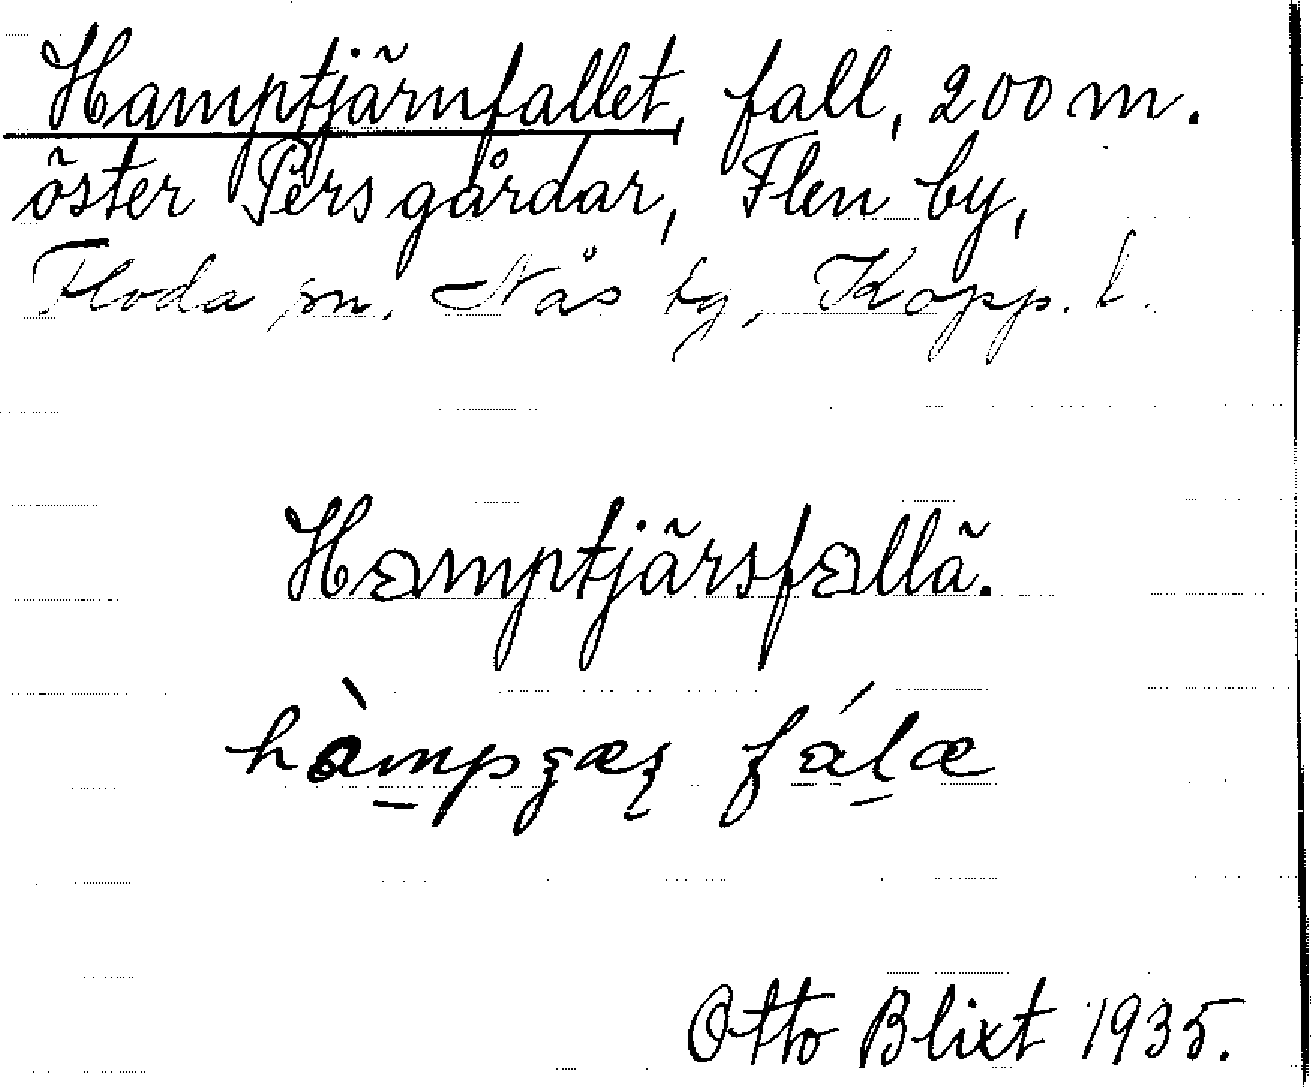 Hamptjärnfallet, fall, 200 m.
öster Persgårdar, Flen by,
Floda sn, Nås tg, Kopp. l.
Hamptjärsfallä.
Otto Blixt 1935.